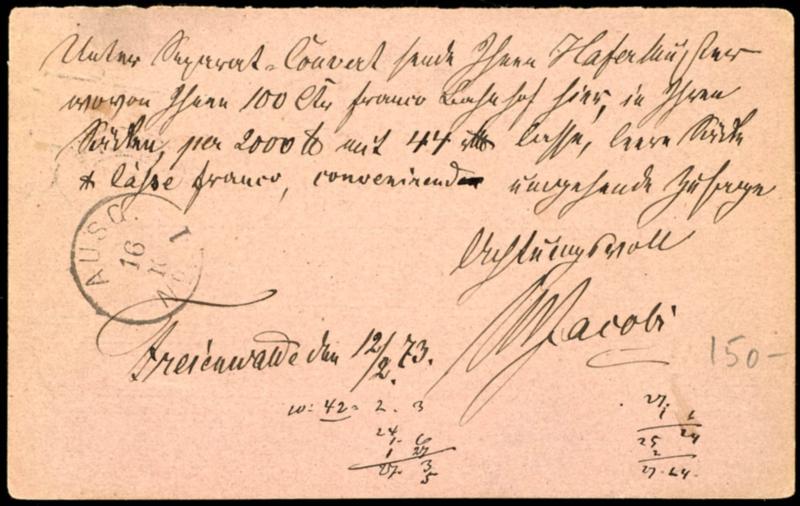 Unter Separat-Couvert sende Ihnen Hafermuster
wovon Ihnen 100 Ctr franco Bahnhof hier, in Ihren
Säcken, per 2000 ℔ mit 44 lasse, leere Säcke
franco, convenirend umgehende Zusage
Achtungsvoll
Jacobi
Freienwalde den 12/2. 73.
AUSG.
16
N 1
150-
w: 42= 2. 3
24
1. 6
1 27
27. 3
5
27.
1 2
25 24
2
27.